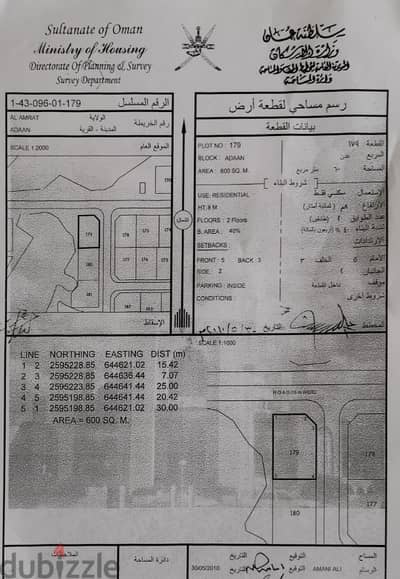 Sultanate of Oman
Ministry of Housing
Directorate Of Planning & Survey
Survey Department
سلطنة عمان
وزارة الإسكان
1-43-096-01-179 الرقم المسلسل
AL AMRAT الولاية
ADAAN المدينة - القرية
رقم الخريطة
SCALE 1:2000 الموقع العام
179
181
الشمال
الإسقاط
رسم مساحي لقطعة أرض
بيانات القطعة
PLOT NO : 179 القطعة ١٧٩
BLOCK : ADAAN المربع عدن
AREA : 600 SQ. M. المساحة ٦٠٠ متر مربع
شروط البناء
USE: RESIDENTIAL الإستعمال سكني فقط
HT: 8 M الإرتفاع ٨م (ثمانية أمتار)
FLOORS : 2 Floors عدد الطوابق ٢ (طابقين)
B. AREA : 40% نسبة البناء ٤٠٪ (أربعون بالمائة)
SETBACKS : الإرتدادات
FRONT : 5 BACK : 3 الأمام ٥ الخلف ٣
SIDE : 2 الجانبان ٢
PARKING : INSIDE موقف داخل القطعة
CONDITIONS : شروط أخرى
المخطط التاريخ
SCALE 1:1000
LINE NORTHING EASTING DIST (m)
1 2 2595228.85 644621.02 15.42
2 3 2595228.85 644636.44 7.07
3 4 2595223.85 644641.44 25.00
4 5 2595198.85 644641.44 20.42
5 1 2595198.85 644621.02 30.00
AREA = 600 SQ. M.
179
178
177
180
الملاحظات
دائرة المساحة
التاريخ التوقيع المساح
30/05/2010 التاريخ التوقيع AMANI ALI الرسام
dubizzle